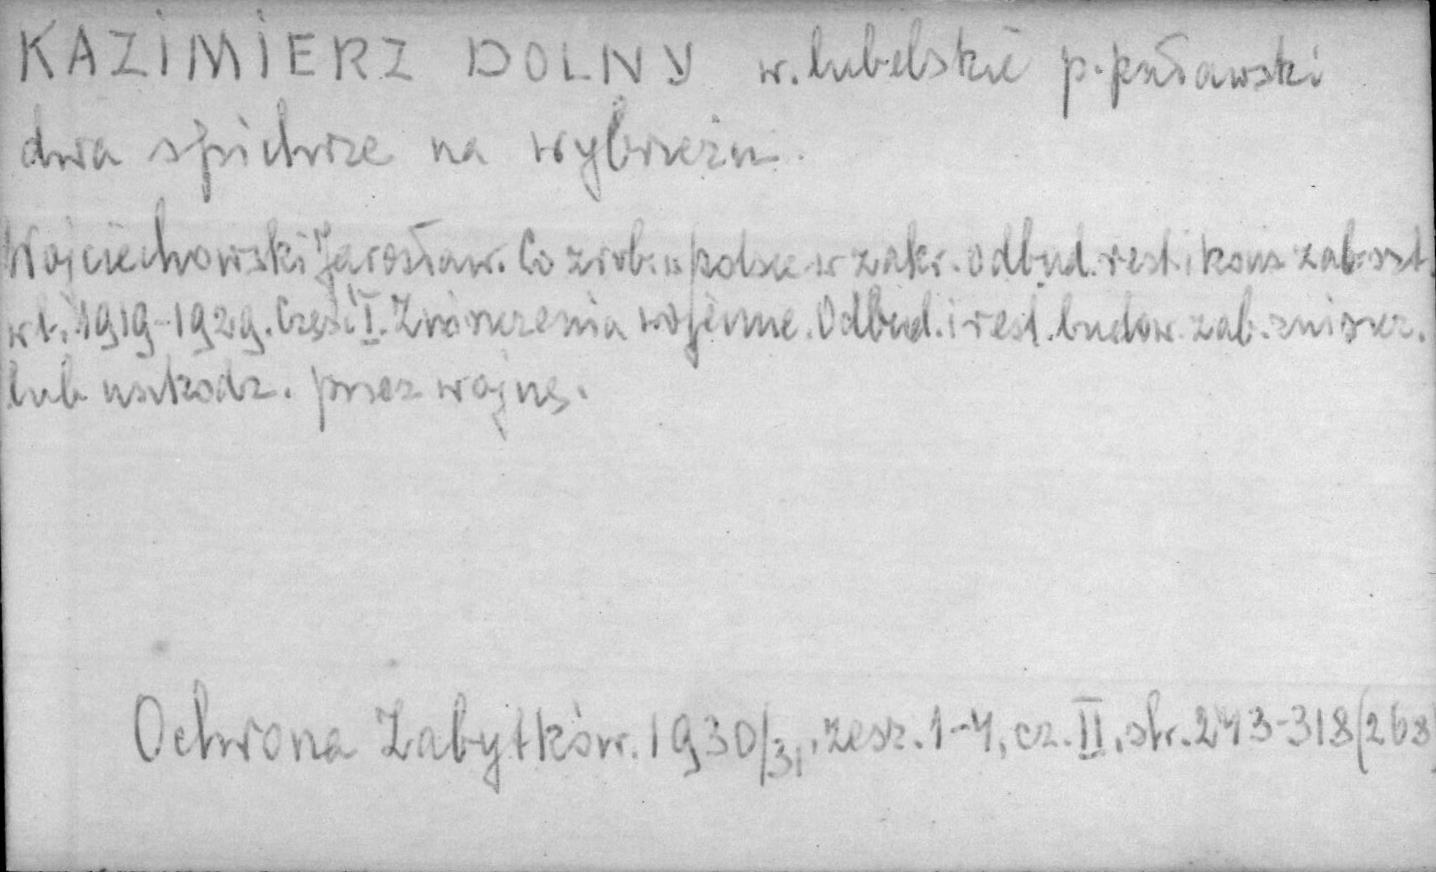 KAZIMIERZ DOLNY w. lubelskie p. puławski
dwa spichrze na wybrzeżu.
Wojciechowski Jarosław. Co zrob. w Polsce w zakr. odbud. rest. i kons. zab. szt.
w l. 1919-1929. Część I. Zniszczenia wojenne. Odbud. i rest. budow. zab. zniszcz.
lub uszkodz. przez wojnę.
Ochrona Zabytków. 1930/31, zesz. 1-4, cz. II, str. 243-318 (268)